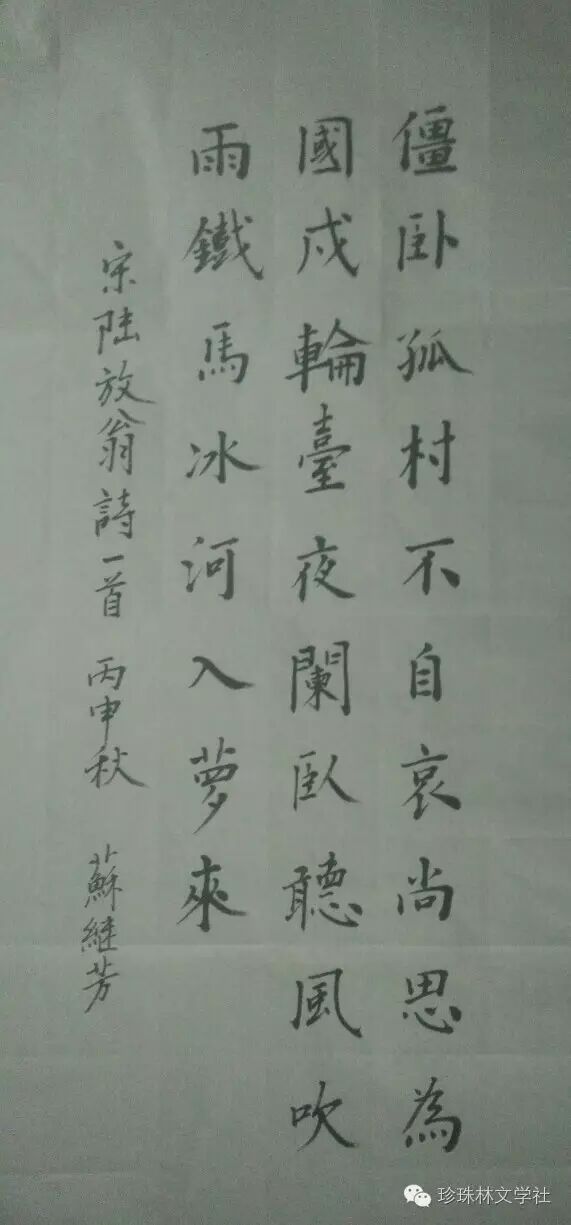 僵卧孤村不自哀尚思為
國戍輪臺夜闌臥聽風吹
雨鐵馬冰河入夢來
宋陆放翁詩一首 丙申秋 蘇継芳
珍珠林文学社